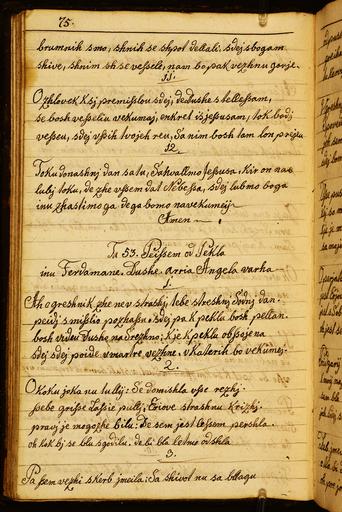 75.
brumnik smo, shnik se shpot dellali. sdej sbogam
shive, shnim sh se vesselè, nam bo pak vezhnu gorje.
11.
O zhlovek k sj premislou sdej, de dushe s tellessam,
se bosh vesseliu vekumaj, enkret is jesusam, tok bodj
vesseu, sdej vsih tvojeh reu, Sa nim bosh tam lon prejeu
12.
Toku donashnj dan sa tu, Sahvallmo Jesusa, Kir on nas
lubj toku, de zhe vssem dat Nebessa, sdej lubmo boga
inu zhastimo ga de ga bomo navekumeij
Amen
Tu 53. Peissem od Pekla
inu Ferdamane. Dushe. arria Angela varha
1.
Ah greshnik zhe nev strashj Tebe streshnj sodnj dan
pejdj s misslio
sdej pa k pekla bosh pellan.
bosh vidu Dushe na
k je k peklu obsojena
sdej sdej pojde vmartre vezhne. vkaterih bo vekumej.
2.
O koku joka nu tullij: Se domishla vsse rezhj.
sebe grisse Lassie pullj, Eriove strashnu krizhj.
pravj je mogozhe bilu: De sem jest tessam pershla.
oh kok bj se blu sgodilu. de bi bla letmo odshla
3.
Pa sem vezhi skerb jmeila: Sa shivot nu sa bllagu